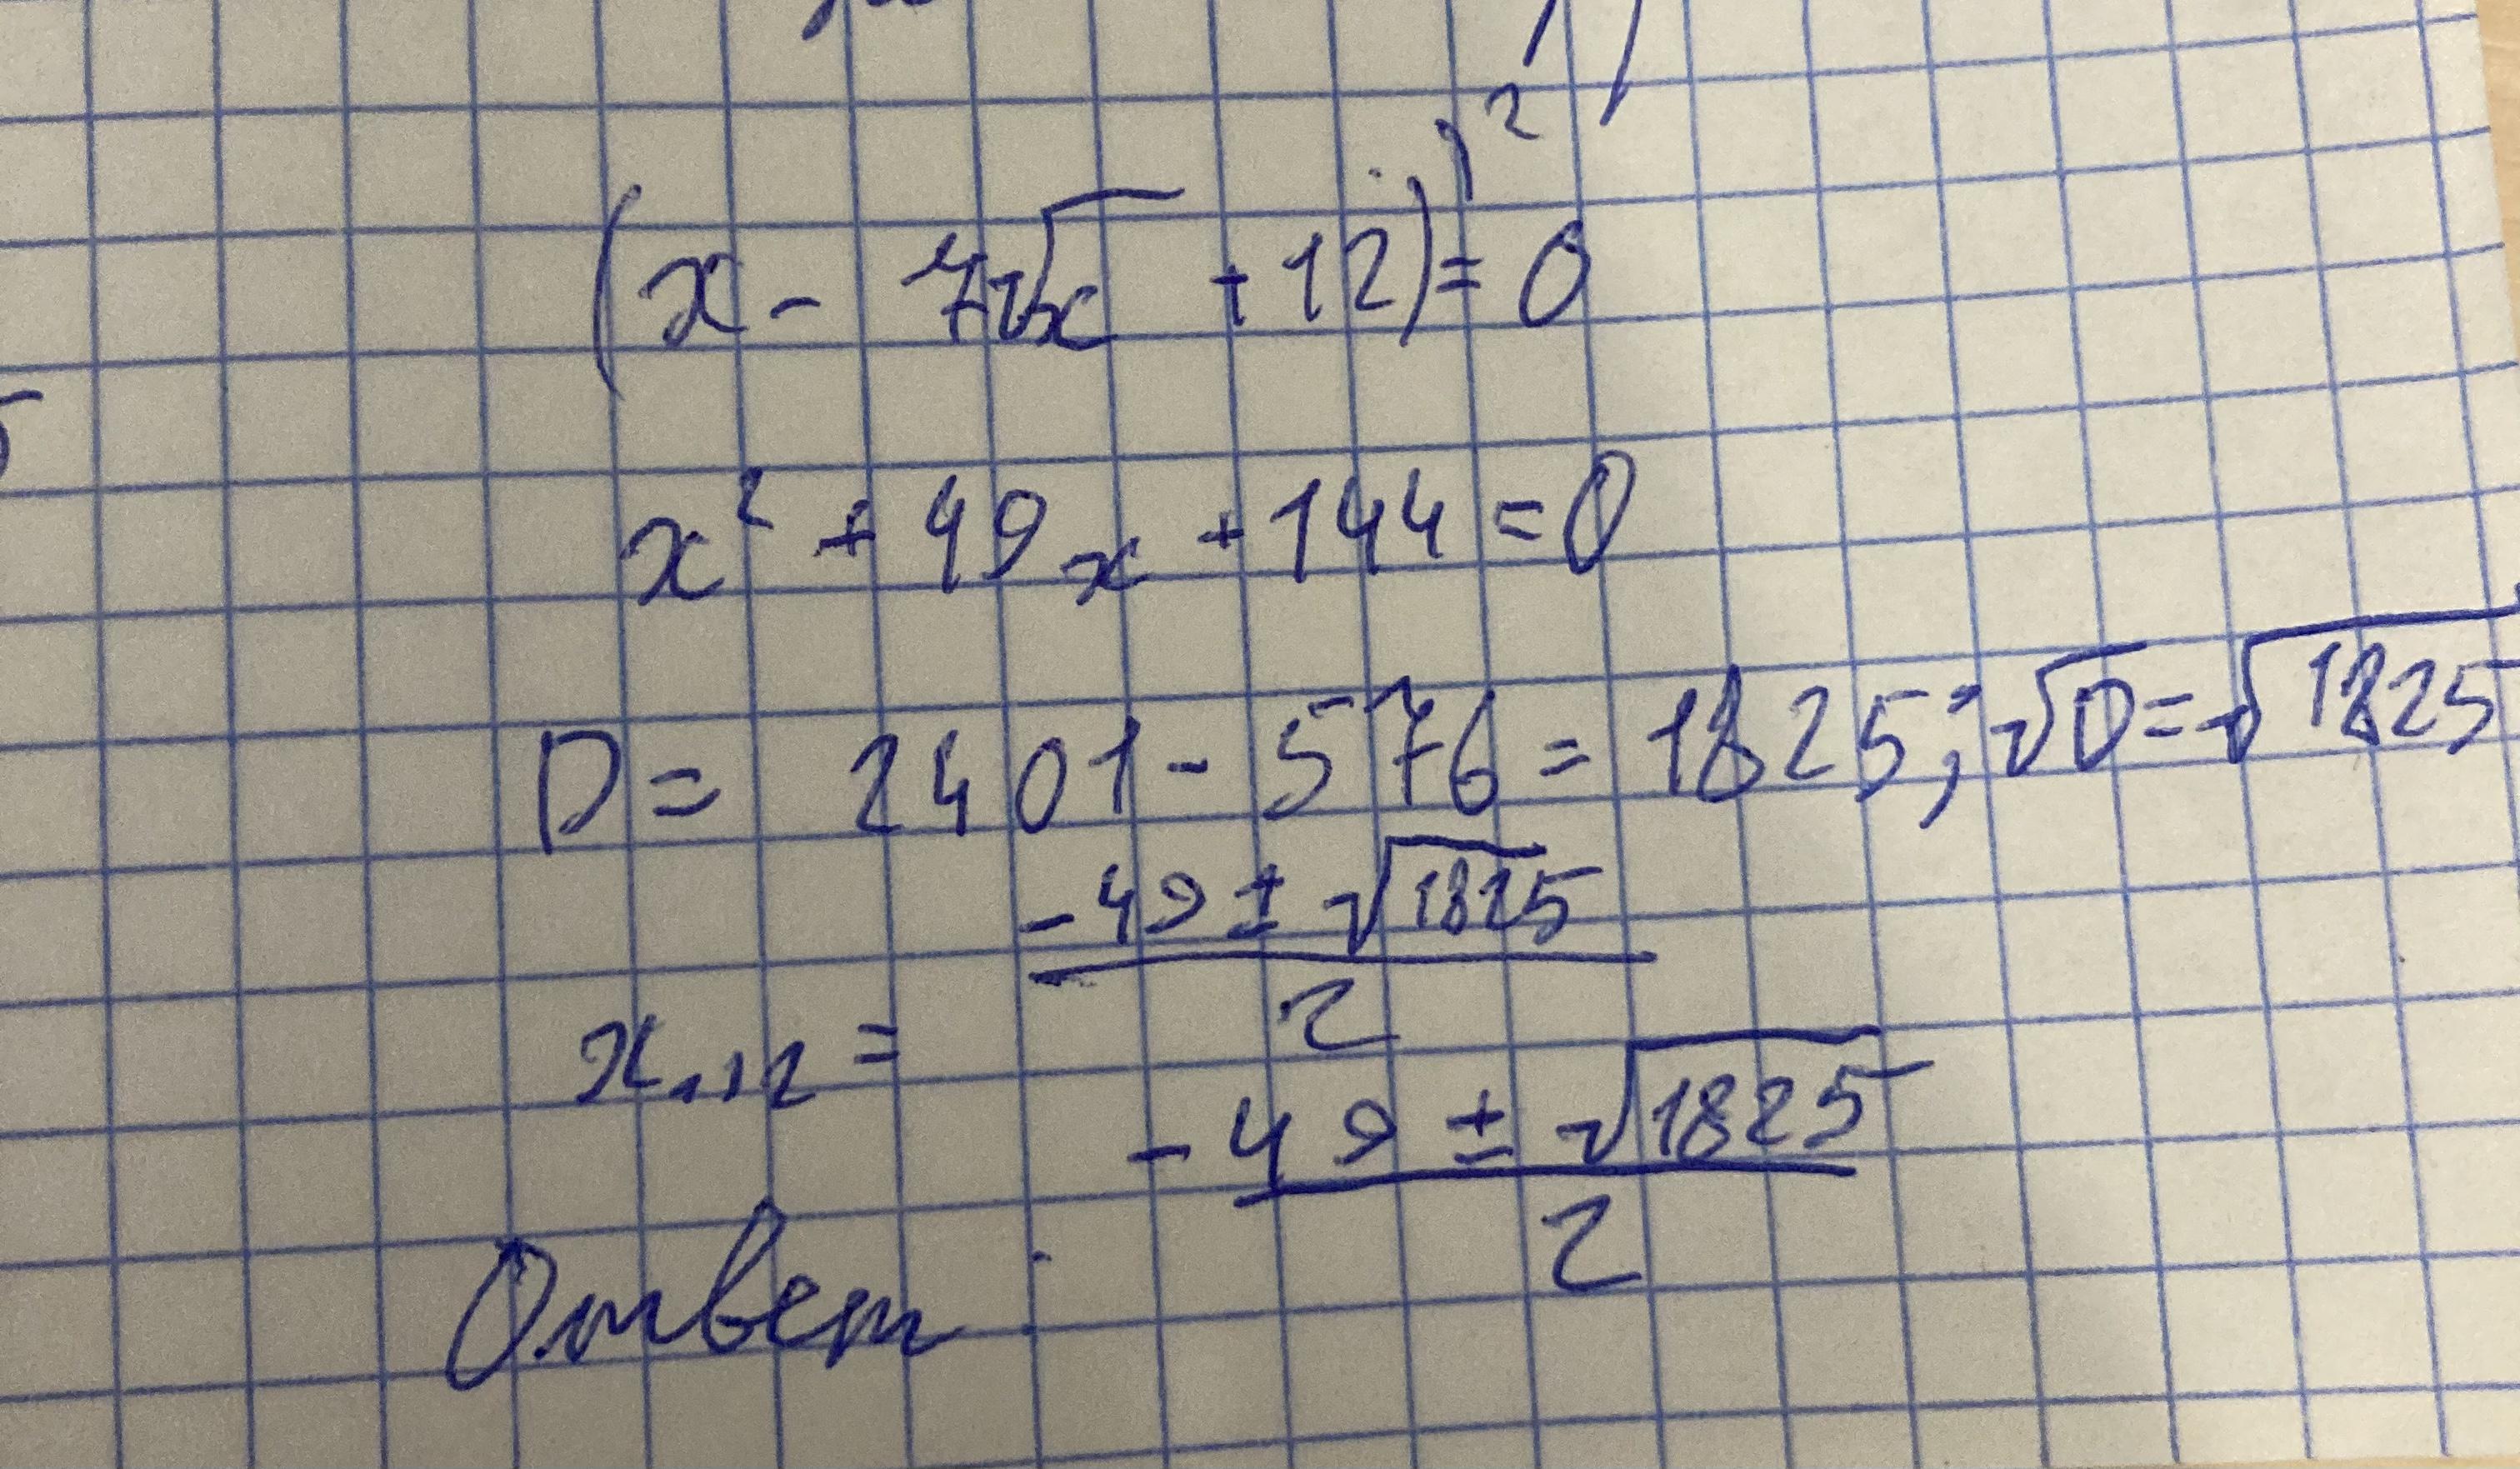 (x - 7√x + 12)² = 0
x² + 49x + 144 = 0
D = 2401 - 576 = 1825; √D = √1825
x₁,₂ = (-49 ± √1825) / 2
Ответ: (-49 ± √1825) / 2